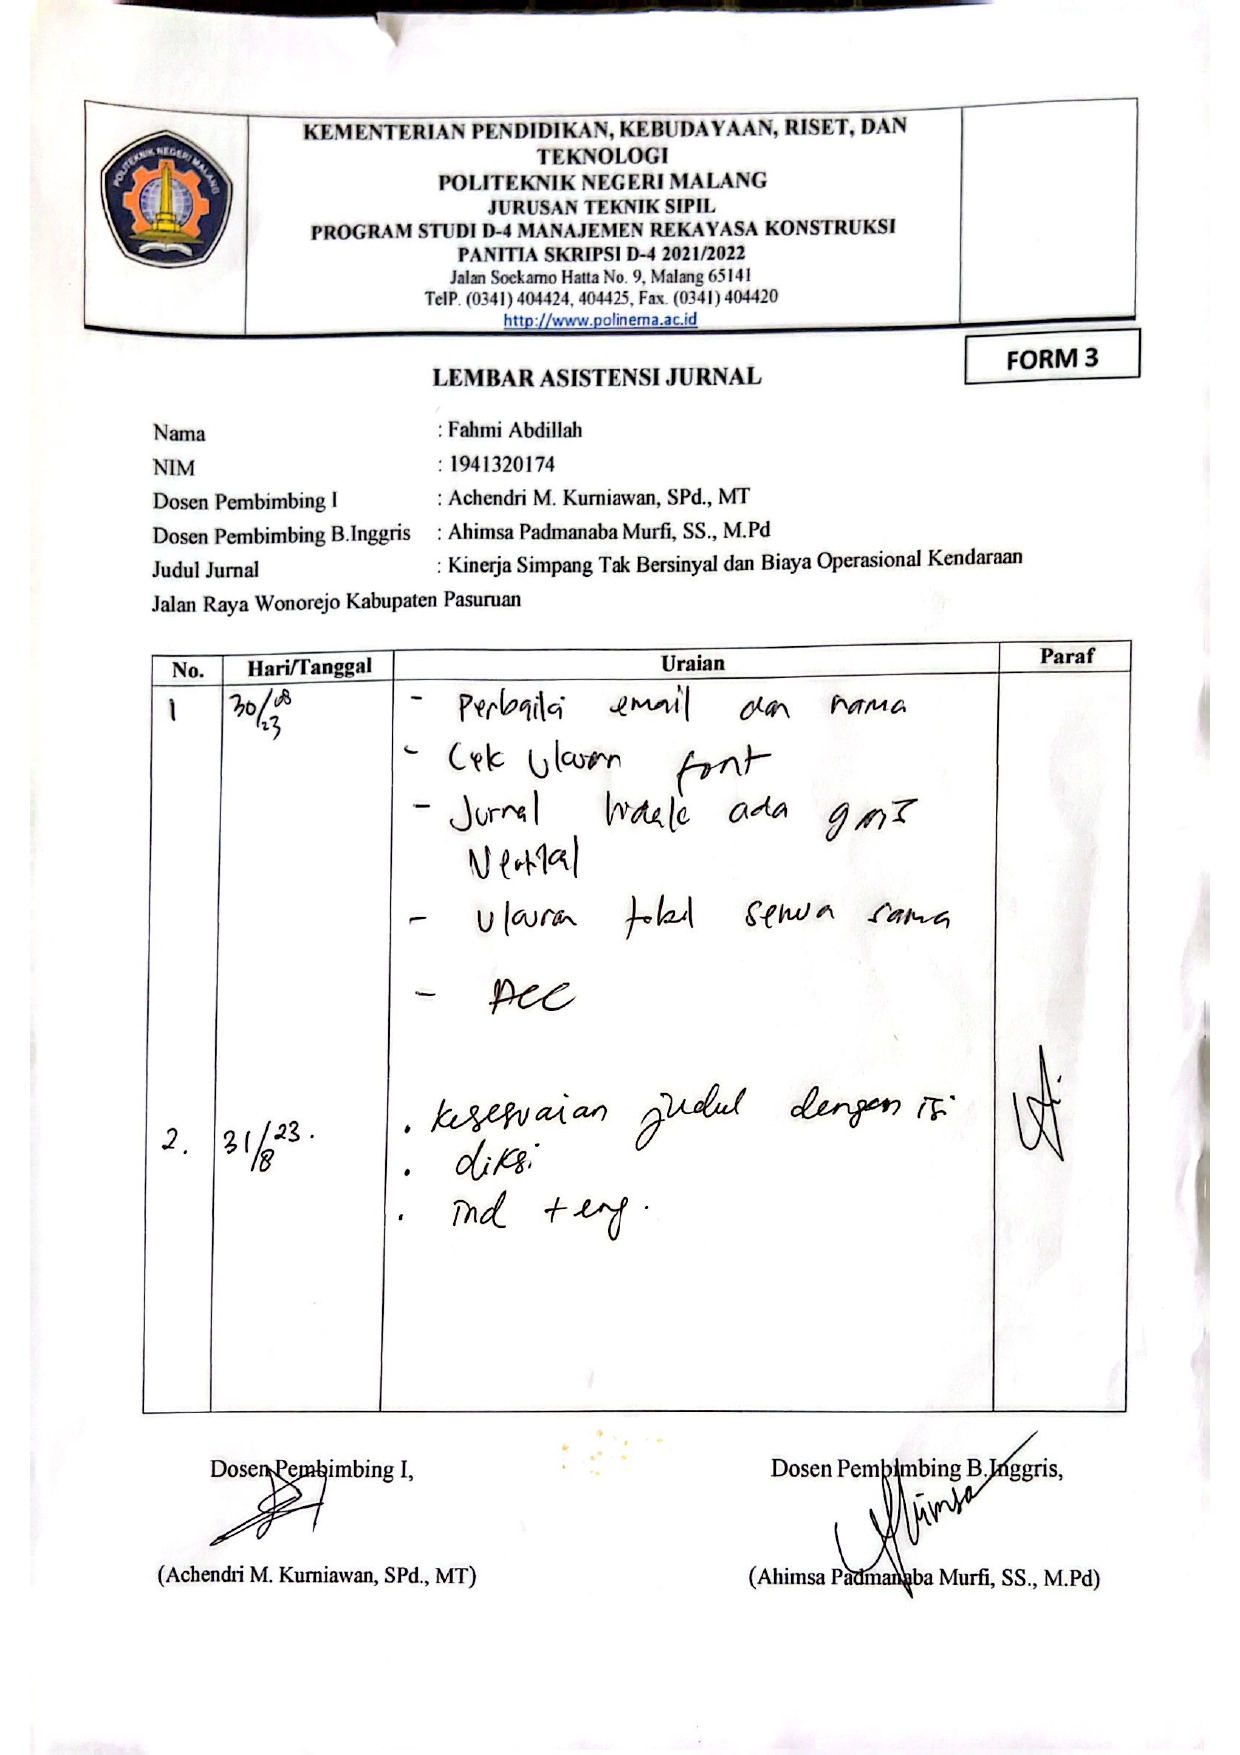 POLITEKNIK NEGERI MALANG
KEMENTERIAN PENDIDIKAN, KEBUDAYAAN, RISET, DAN
TEKNOLOGI
POLITEKNIK NEGERI MALANG
JURUSAN TEKNIK SIPIL
PROGRAM STUDI D-4 MANAJEMEN REKAYASA KONSTRUKSI
PANITIA SKRIPSI D-4 2021/2022
Jalan Soekarno Hatta No. 9, Malang 65141
TelP. (0341) 404424, 404425, Fax. (0341) 404420
http://www.polinema.ac.id
FORM 3
LEMBAR ASISTENSI JURNAL
Nama : Fahmi Abdillah
NIM : 1941320174
Dosen Pembimbing I : Achendri M. Kurniawan, SPd., MT
Dosen Pembimbing B.Inggris : Ahimsa Padmanaba Murfi, SS., M.Pd
Judul Jurnal : Kinerja Simpang Tak Bersinyal dan Biaya Operasional Kendaraan
Jalan Raya Wonorejo Kabupaten Pasuruan
No. Hari/Tanggal Uraian Paraf
1 30/08/23 - Perbaiki email dan nama
- Cek Ukuran font
- Jurnal tidak ada garis
Vertikal
- Ukuran tabel semua sama
- ACC
2. 31/8 23. . kesesuaian judul dengan isi
. diksi
. ind + eng.
Dosen Pembimbing I, Dosen Pembimbing B.Inggris,
(Achendri M. Kurniawan, SPd., MT) (Ahimsa Padmanaba Murfi, SS., M.Pd)